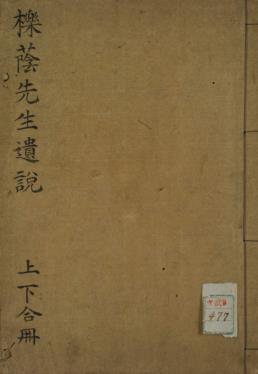 櫟蔭先生遺説
上下合冊
477